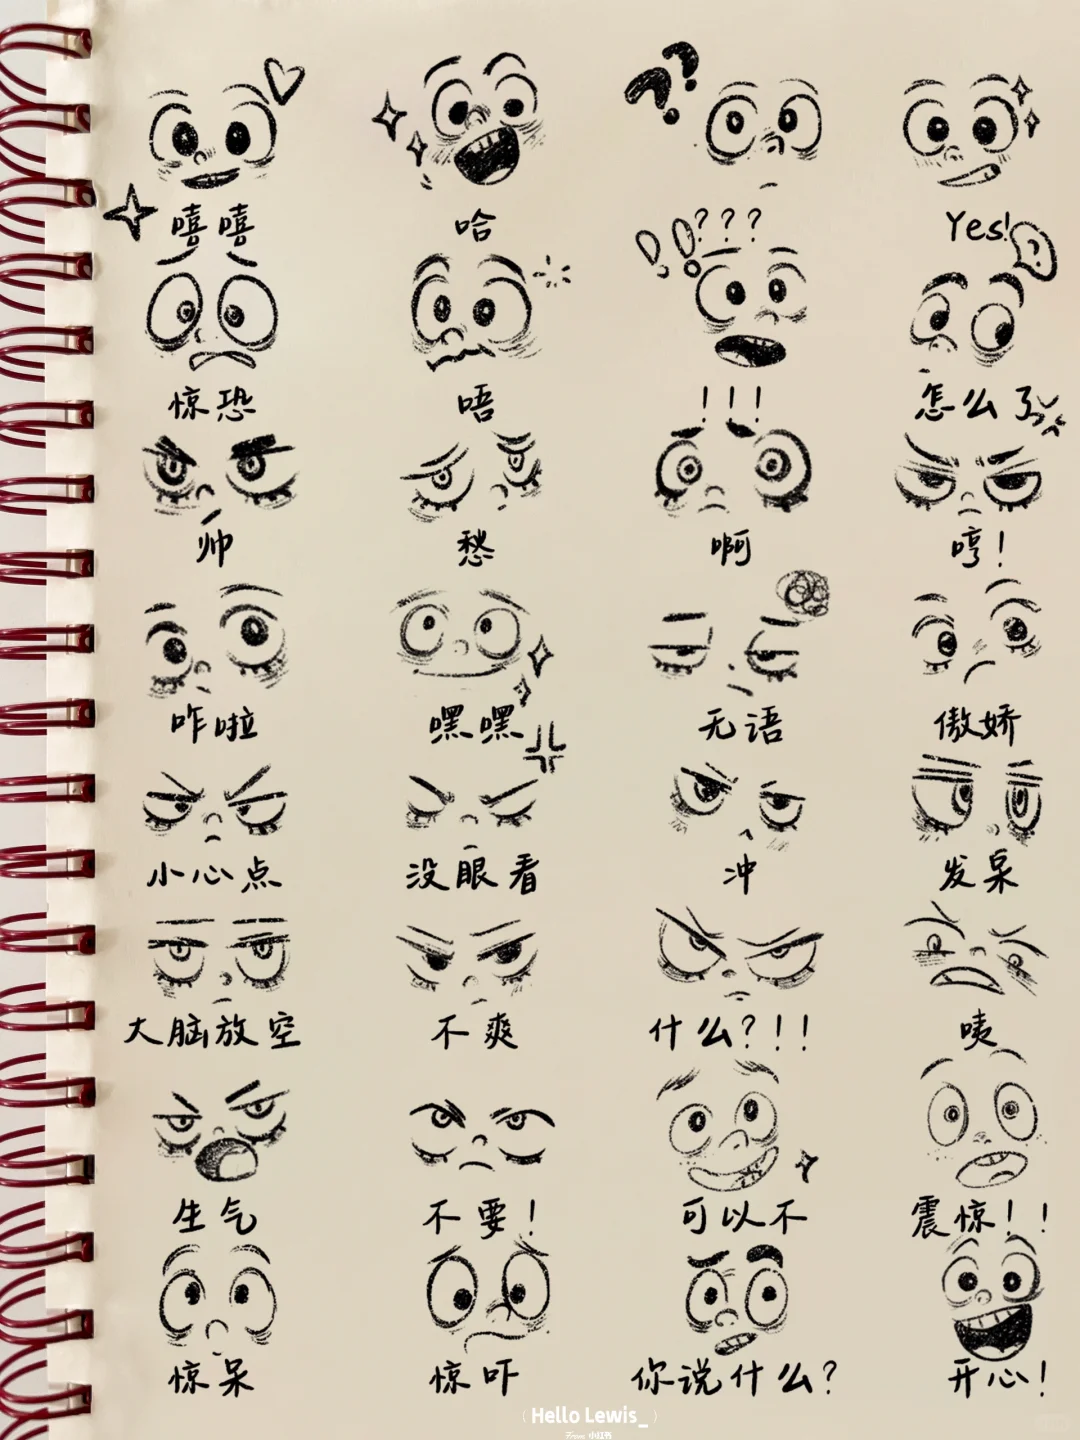 嘻嘻 哈 ??? Yes!
惊恐 唔 !!! 怎么了
帅 愁 啊 哼!
咋啦 嘿嘿 无语 傲娇
小心点 没眼看 冲 发呆
大脑放空 不爽 什么?!! 咦
生气 不要! 可以不 震惊!!
惊呆 惊吓 你说什么? 开心!
Hello Lewis_
From 小红书